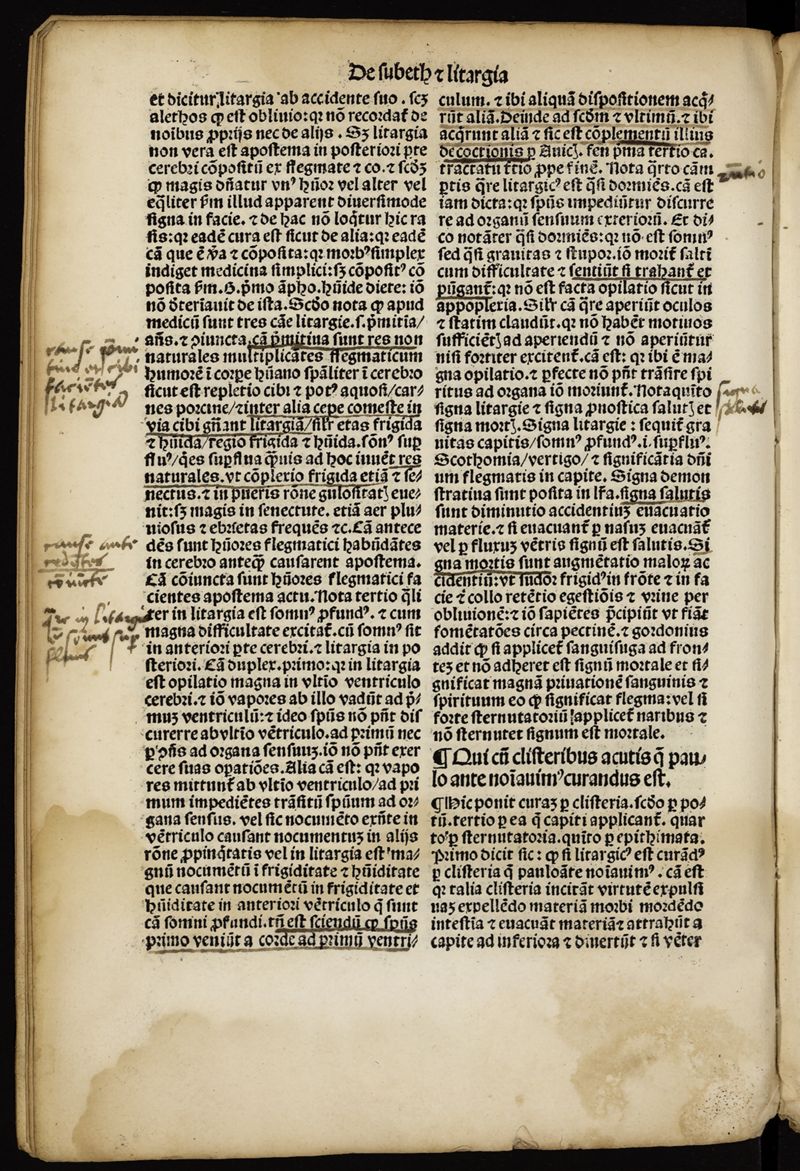 De subeth ⁊ litargia
et dicitur litargia ab accidente suo . scꝫ
alethos ꝙ est obliuio: qꝛ nō recordat᷑ de
noibus ꝓprijs nec de alijs . Sꝫ litargia
non vera est apostema in posteriori ꝑte
cerebri cōpositū ex flegmate ⁊ co. ⁊ scdꝫ
ꝙ magis dn̄atur vnꝰ hūor vel alter vel
eq̄liter ẜm illud apparent diuersimode
signa in facie. ⁊ de hac nō loq̄tur hic ra
sis: qꝛ eadē cura est sicut de alia: qꝛ eadē
cā que ē v̄a ⁊ cōposita: qꝛ morbꝰ simplex
indiget medicina simplici: sꝫ cōpositꝰ cō
posita ẜm. G. p̄mo āpho. hūide diete: iō
nō d̄teriauit de ista. Scdo nota ꝙ apud
medicū sunt tres cāe litargie. s. p̄mitia/
ans. ⁊ ꝯiuncta. cā p̄mitiua sunt res non
naturales multiplicātes flegmaticum
humorē ī corpe hūano sp̄aliter ī cerebro
sicut est repletio cibi ⁊ potꝰ aquosi/car⸗
nes porcine/⁊ inter alia cepe comeste in
via cibi gn̄ant litargiā/silr etas frigida
⁊ hūida/regio frigida ⁊ hūida. sōnꝰ suꝑ
fluꝰ/q̄es suꝑflua q̄uis ad hoc iuuēt res
naturales. vt cōplexio frigida etiā ⁊ se⸗
nectus. ⁊ in pueris rōne gulositatꝭ eue⸗
nit: sꝫ magis in senectute. etiā aer plu⸗
uiosus ⁊ ebrietas frequēs ⁊c. Cā antece
dēs sunt hūores flegmatici habūdātes
in cerebro anteq̄ causarent apostema.
Cā cōiuncta sunt hūores flegmatici fa
cientes apostema actu. Nota tertio q̄li
ter in litargia est somnꝰ ꝓfundꝰ. ⁊ cum
magna difficultate excitat᷑. cū somnꝰ sit
in anteriori ꝑte cerebri. ⁊ litargia in po
steriori. Cā duplex. primo: qꝛ in litargia
est opilatio magna in vltīo ventriculo
cerebri. ⁊ iō vapores ab illo vadūt ad p̄
muꝫ ventriculū: ⁊ ideo sp̄us nō pn̄t dis
currere ab vltīo vētriculo. ad primū nec
ꝑ ꝯn̄s ad organa sensuuꝫ. iō nō pn̄t exer
cere suas oꝑatiōes. Alia cā est: qꝛ vapo
res mittunt᷑ ab vltīo ventriculo/ad pri
mum impediētes trāsitū sp̄uum ad or⸗
gana sensus. vel sic nocumēto exn̄te in
vētriculo causant nocumentuꝫ in alijs
rōne ꝓpinq̄tatis vel in litargia est ma⸗
gnū nocumētū ī frigiditate ⁊ hūiditate
que causant nocumētū in frigiditate et
hūiditate in anteriori vētriculo q̄ sunt
cā somni ꝓfundi. tn̄ est sciendū ꝙ sp̄us
primo veniūt a corde ad primū ventri⸗
culum. ⁊ ibi aliquā dispositionem acq̄⸗
rūt aliā. Deinde ad scdm ⁊ vltimū. ⁊ ibi
acq̄runt aliā ⁊ sic est cōplementū illius
decoctionis ꝑ Auicꝭ. fen p̄ma tertio ca.
tractatu t̄tio ꝓpe finē. Nota q̄rto cām
ꝑtis q̄re litargicꝰ est q̄si dormiēs. cā est
iam dicta: qꝛ sp̄us impediūtur discurre
re ad organū sensuum exteriorū. Et di⸗
co notāter q̄si dormiēs: qꝛ nō est somnꝰ
sed q̄si grauitas ⁊ stupor. iō morit᷑ saltī
cum difficultate ⁊ sentiūt si trahant᷑ et
pūgant᷑: qꝛ nō est facta opilatio sicut in
appoplexia. Silr cā q̄re aperiūt oculos
⁊ statim claudūt. qꝛ nō habēt motiuos
sufficiētꝭ ad aperiendū ⁊ nō aperiūtur
nisi fortiter excitent᷑. cā est: qꝛ ibi ē ma⸗
gna opilatio. ⁊ ꝑfecte nō pn̄t trāsire spi
ritus ad organa iō moriunt᷑. Nota quīto
signa litargie ⁊ signa ꝓnostica salutꝭ et
signa mortꝭ. Signa litargie : sequit᷑ gra
uitas capitis/somnꝰ ꝓfundꝰ. i. suꝑfluꝰ.
Scothomia/vertigo/⁊ significātia dn̄i
um flegmatis in capite. Signa demon
stratina sunt posita in lr̄a. signa salutis
sunt diminutio accidentiuꝫ euacuatio
materie. ⁊ si euacuant᷑ ꝑ nasuꝫ euacuāt᷑
vel ꝑ fluxuꝫ vētris signū est salutis. Si
gna mortis sunt augmētatio maloꝝ ac
cidentiū: vt sudor frigidꝰ in frōte ⁊ in fa
cie ⁊ collo retētio egestiōis ⁊ vrine per
obliuionē: ⁊ iō sapiētes p̄cipiūt vt fiāt
fomētatōes circa pectinē. ⁊ gordonius
addit ꝙ si applicet᷑ sanguisuga ad fron⸗
teꝫ et nō adheret est signū mortale et si⸗
gnificat magnā priuationē sanguinis ⁊
spirituum eo ꝙ significat flegma: vel si
forte sternutatoriū applicet᷑ naribus ⁊
nō sternutet signum est mortale.
¶ Qui cū clisteribus acutis q̄ pau⸗
lo ante noīauimꝰ curandus est.
¶ Hic ponit curaꝫ ꝑ clisteria. scdo ꝑ po⸗
tū. tertio ꝑ ea q̄ capiti applicant᷑. quar
toꝰ ꝑ sternutatoria. quīto ꝑ epithimata.
Primo dicit sic: ꝙ si litargicꝰ est curādꝰ
ꝑ clisteria q̄ pauloāte noīauimꝰ. cā est
qꝛ talia clisteria incitāt virtutē expulsi
uaꝫ expellēdo materiā morbi mordēdo
intestīa ⁊ euacuāt materiā⁊ attrahūt a
capite ad inferiora ⁊ diuertūt ⁊ si vēter